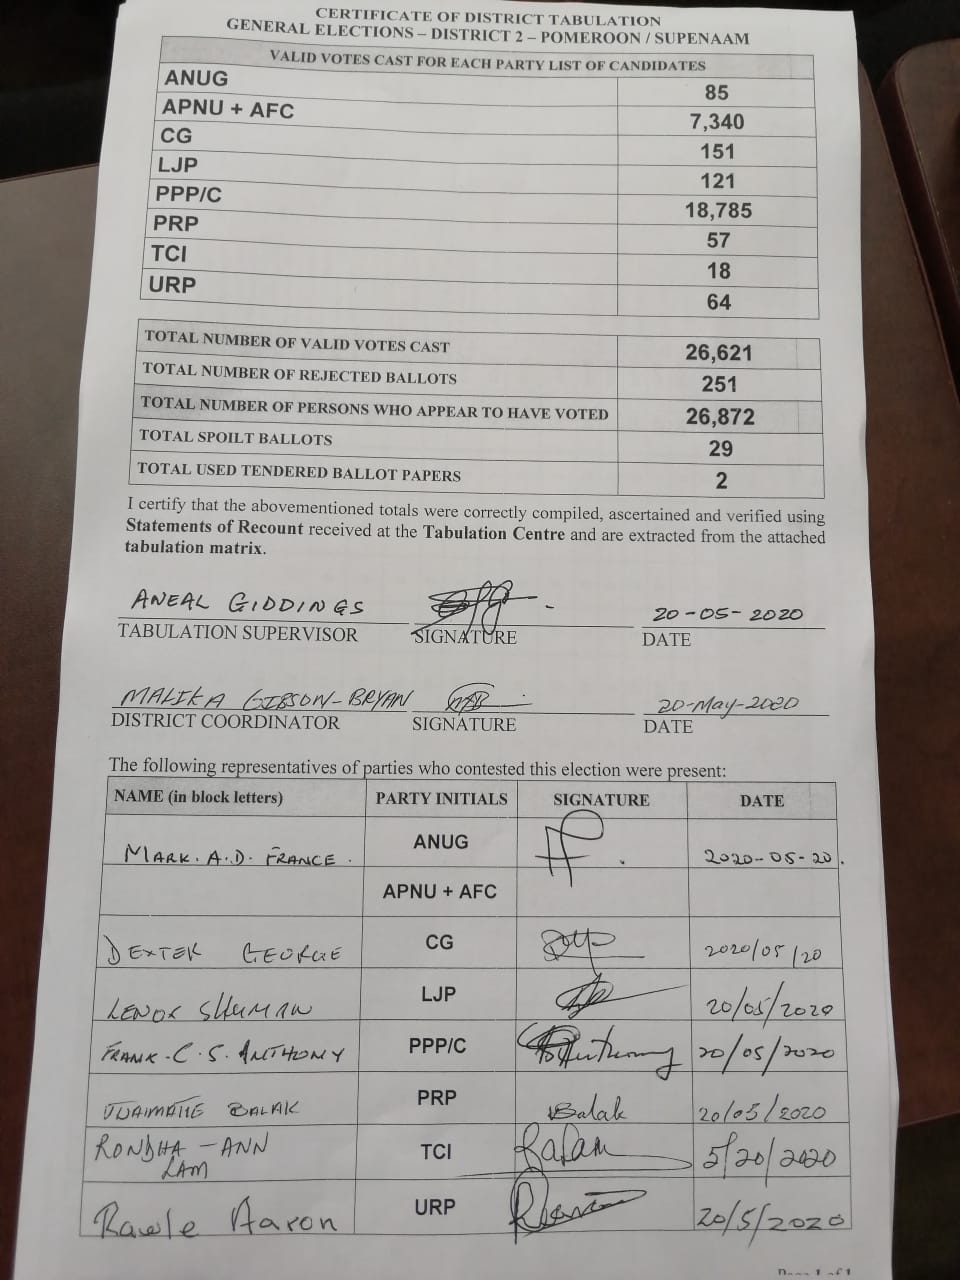 CERTIFICATE OF DISTRICT TABULATION
GENERAL ELECTIONS – DISTRICT 2 – POMEROON / SUPENAAM
VALID VOTES CAST FOR EACH PARTY LIST OF CANDIDATES
ANUG 85
APNU + AFC 7,340
CG 151
LJP 121
PPP/C 18,785
PRP 57
TCI 18
URP 64
TOTAL NUMBER OF VALID VOTES CAST 26,621
TOTAL NUMBER OF REJECTED BALLOTS 251
TOTAL NUMBER OF PERSONS WHO APPEAR TO HAVE VOTED 26,872
TOTAL SPOILT BALLOTS 29
TOTAL USED TENDERED BALLOT PAPERS 2
I certify that the abovementioned totals were correctly compiled, ascertained and verified using
Statements of Recount received at the Tabulation Centre and are extracted from the attached
tabulation matrix.
ANEAL GIDDINGS 20-05-2020
TABULATION SUPERVISOR SIGNATURE DATE
MALIKA GIBSON-BRYAN 20-May-2020
DISTRICT COORDINATOR SIGNATURE DATE
The following representatives of parties who contested this election were present:
NAME (in block letters) PARTY INITIALS SIGNATURE DATE
MARK. A.D. FRANCE. ANUG 2020-05-20.
APNU + AFC
DEXTER GEORGE CG 2020/05/20
LENOX SHUMAN LJP 20/05/2020
FRANK.C.S. ANTHONY PPP/C 20/05/2020
BALAK PRP Balak 20/05/2020
RONDHA-ANN
LAM TCI 5/20/2020
Rawle Aaron URP 20/5/2020